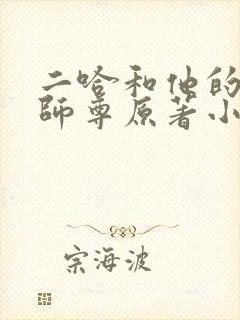 二哈和他的
師尊原著小
宗海波